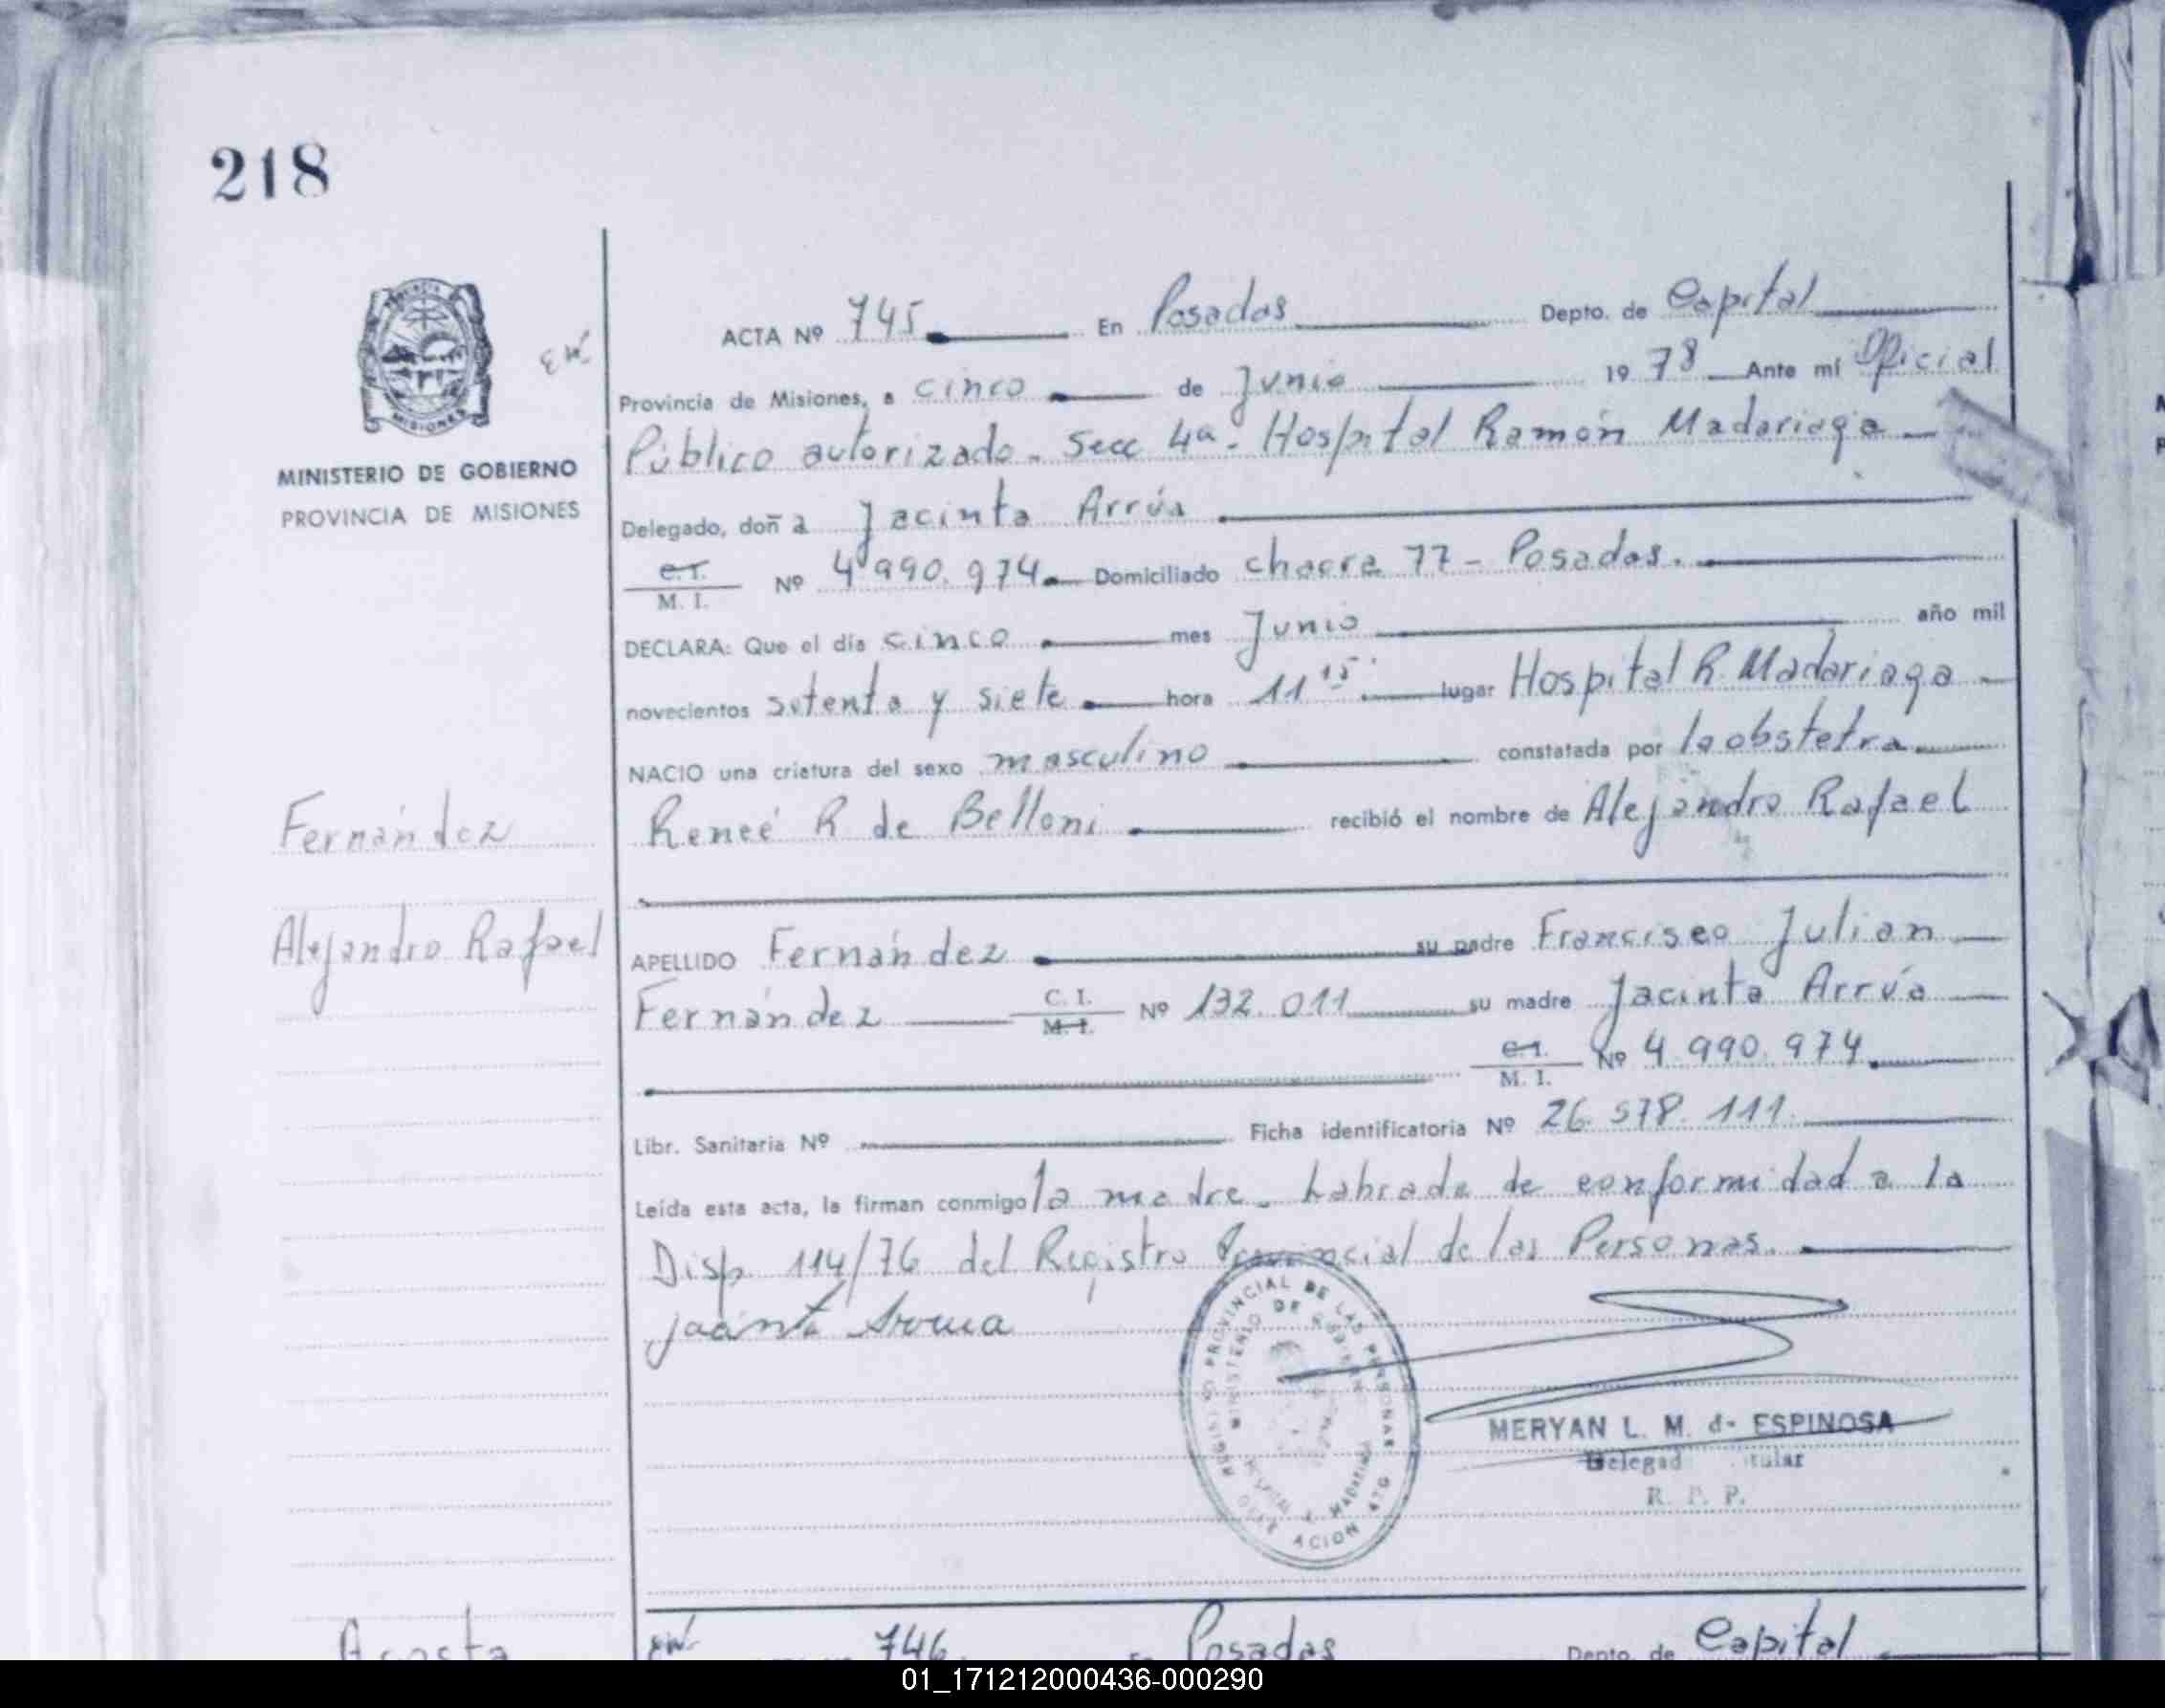 218
ACTA Nº 745 En Posadas Depto. de Capital
Provincia de Misiones, a cinco de Junio 1978 Ante mí Oficial
Público autorizado - Secc 4ª - Hospital Ramón Madariaga
MINISTERIO DE GOBIERNO
PROVINCIA DE MISIONES
Delegado, doña Jacinta Arrúa
C.I. M. I. Nº 4.990.974 Domiciliado chacra 77 - Posadas.
DECLARA: Que el día cinco mes Junio año mil
novecientos setenta y siete hora 11 15' lugar Hospital R. Madariaga
NACIO una criatura del sexo masculino constatada por la obstetra
Reneé R de Belloni recibió el nombre de Alejandro Rafael
Fernández
Alejandro Rafael
APELLIDO Fernández su padre Francisco Julian
Fernández C. I. M. I. Nº 132.011 su madre Jacinta Arrúa
C.I. M. I. Nº 4.990.974
Libr. Sanitaria Nº Ficha identificatoria Nº 26.578.111.
Leída esta acta, la firman conmigo la madre - Labrada de conformidad a la
Disp 114/76 del Registro Provincial de las Personas.
Jacinta Arrua
REGISTRO PROVINCIAL DE LAS PERSONAS
MINISTERIO DE GOBIERNO
HOSPITAL R. MADARIAGA
MERYAN L. M. de ESPINOSA
R. P. P.
Acosta
746 Posadas Depto. de Capital
01_171212000436-000290